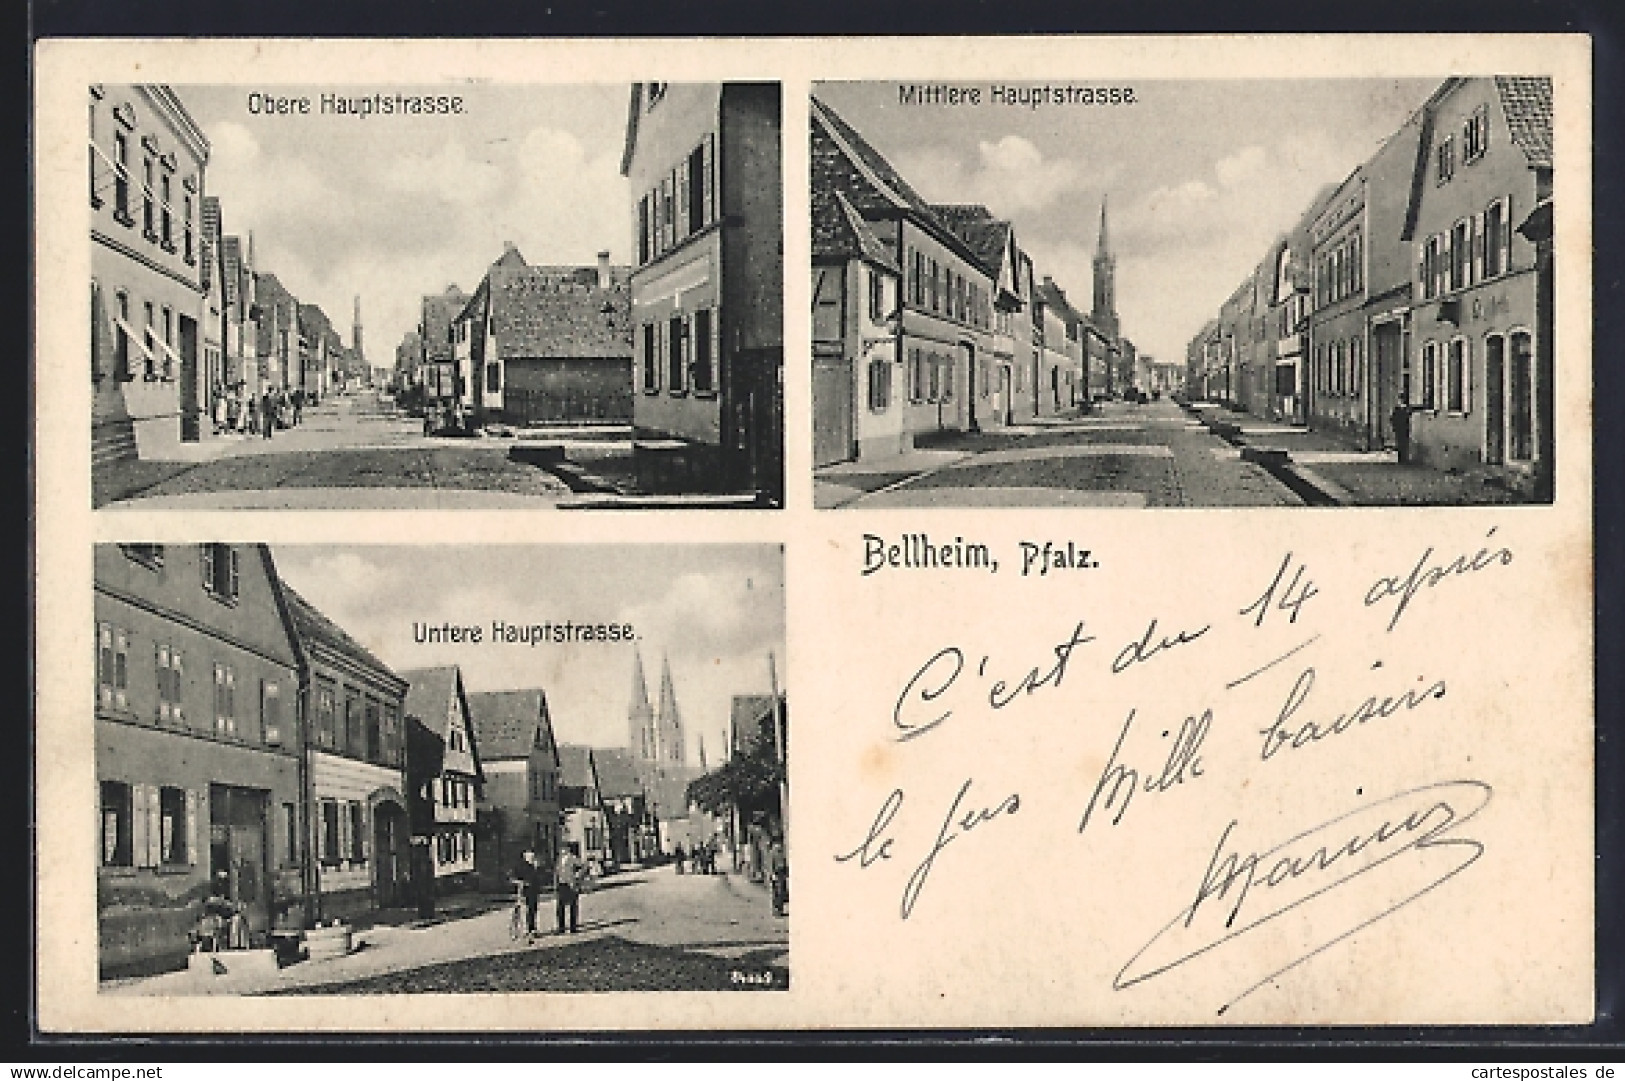 Obere Hauptstrasse.
Mittlere Hauptstrasse.
Untere Hauptstrasse.
Bellheim, Pfalz.
C'est du 14 après
le jus Mille baisers
Marius
cartespostales de